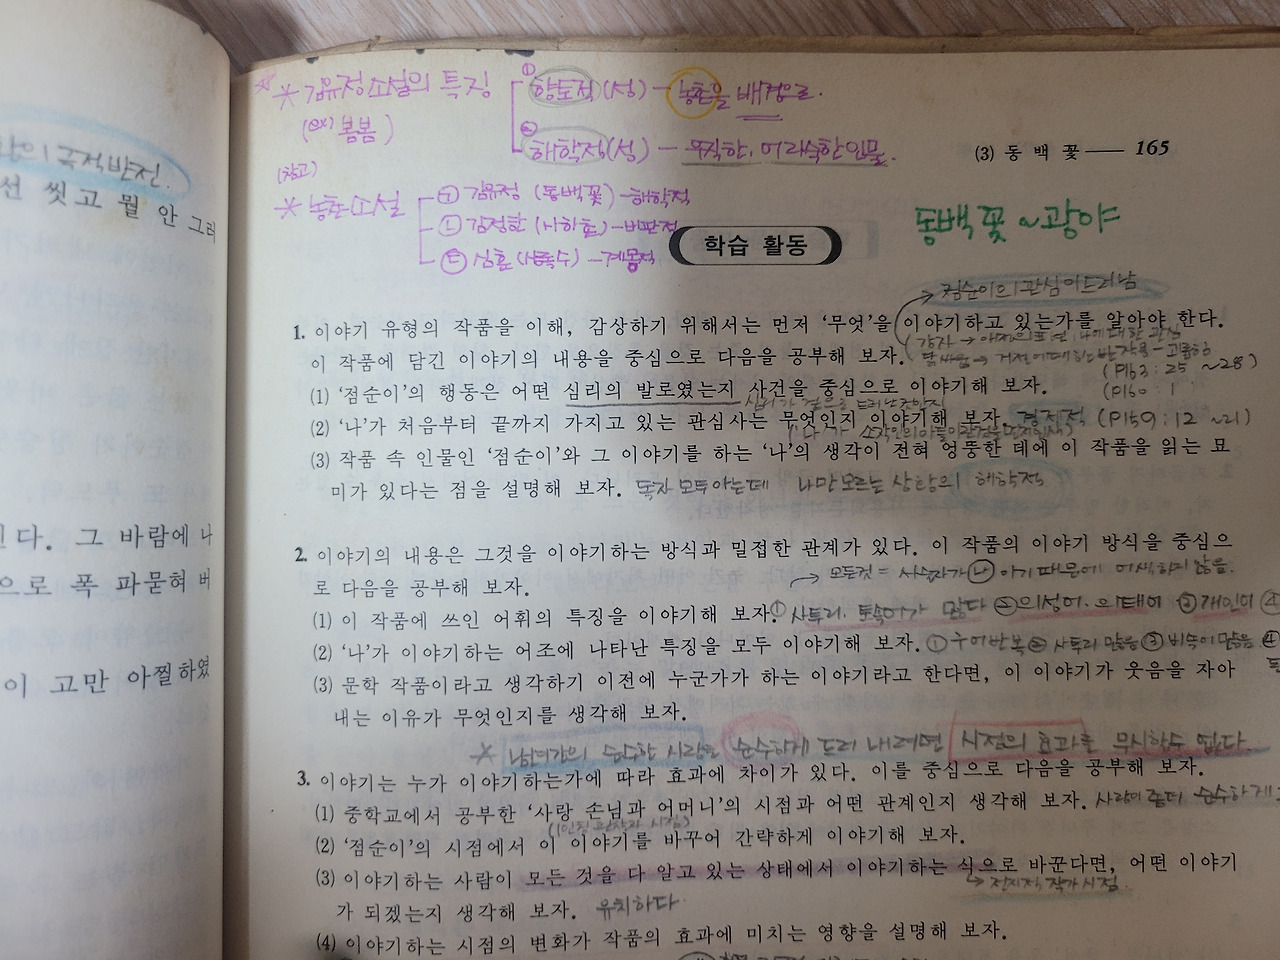 한의 국적반전.
선 씻고 뭘 안 그러
린다. 그 바람에 나
으로 폭 파묻혀 버
이 고만 아찔하였
* 김유정 소설의 특징
① 향토적(성) - 농촌을 배경으로.
(ex) 봄봄)
② 해학적(성) - 무직한, 어리숙한 인물.
(3) 동 백 꽃 —— 165
(참고)
* 농촌소설
㉠ 김유정 (동백꽃) - 해학적
㉡ 김정한 (사하촌) - 비판적
㉢ 심훈 (상록수) - 계몽적
동백꽃 ~ 광야
학습 활동
점순이의 관심이 드러남
1. 이야기 유형의 작품을 이해, 감상하기 위해서는 먼저 ‘무엇’을 이야기하고 있는가를 알아야 한다.
감자 → 나에 대한 관심
이 작품에 담긴 이야기의 내용을 중심으로 다음을 공부해 보자.
닭싸움 → 거절에 대한 반작용 - 괴롭힘
(P163 : 25 ~28)
(1) ‘점순이’의 행동은 어떤 심리의 발로였는지 사건을 중심으로 이야기해 보자.
(P160 : 1
(2) ‘나’가 처음부터 끝까지 가지고 있는 관심사는 무엇인지 이야기해 보자. 경제적 (P159 : 12 ~21)
(3) 작품 속 인물인 ‘점순이’와 그 이야기를 하는 ‘나’의 생각이 전혀 엉뚱한 데에 이 작품을 읽는 묘
미가 있다는 점을 설명해 보자. 독자 모두 아는데 나만 모르는 상황의 해학적
2. 이야기의 내용은 그것을 이야기하는 방식과 밀접한 관계가 있다. 이 작품의 이야기 방식을 중심으
로 다음을 공부해 보자.
→ 모든것 = 서술자가 나 이기 때문에 어색하지 않음.
(1) 이 작품에 쓰인 어휘의 특징을 이야기해 보자. ① 사투리. 토속어가 많다 ② 의성어. 의태어 ③ 개인어 ④
(2) ‘나’가 이야기하는 어조에 나타난 특징을 모두 이야기해 보자. ① 구어반복 ② 사투리 많음 ③ 비속어 많음 ④
(3) 문학 작품이라고 생각하기 이전에 누군가가 하는 이야기라고 한다면, 이 이야기가 웃음을 자아
내는 이유가 무엇인지를 생각해 보자.
* 남녀간의 순수한 사랑을 순수하게 드러 내려면 시점의 효과를 무시할수 없다.
3. 이야기는 누가 이야기하는가에 따라 효과에 차이가 있다. 이를 중심으로 다음을 공부해 보자.
(1) 중학교에서 공부한 ‘사랑 손님과 어머니’의 시점과 어떤 관계인지 생각해 보자. 사랑이 좀더 순수하게
(1인칭 관찰자 시점)
(2) ‘점순이’의 시점에서 이 이야기를 바꾸어 간략하게 이야기해 보자.
(3) 이야기하는 사람이 모든 것을 다 알고 있는 상태에서 이야기하는 식으로 바꾼다면, 어떤 이야기
→ 전지적 작가 시점
가 되겠는지 생각해 보자. 유치하다
(4) 이야기하는 시점의 변화가 작품의 효과에 미치는 영향을 설명해 보자.